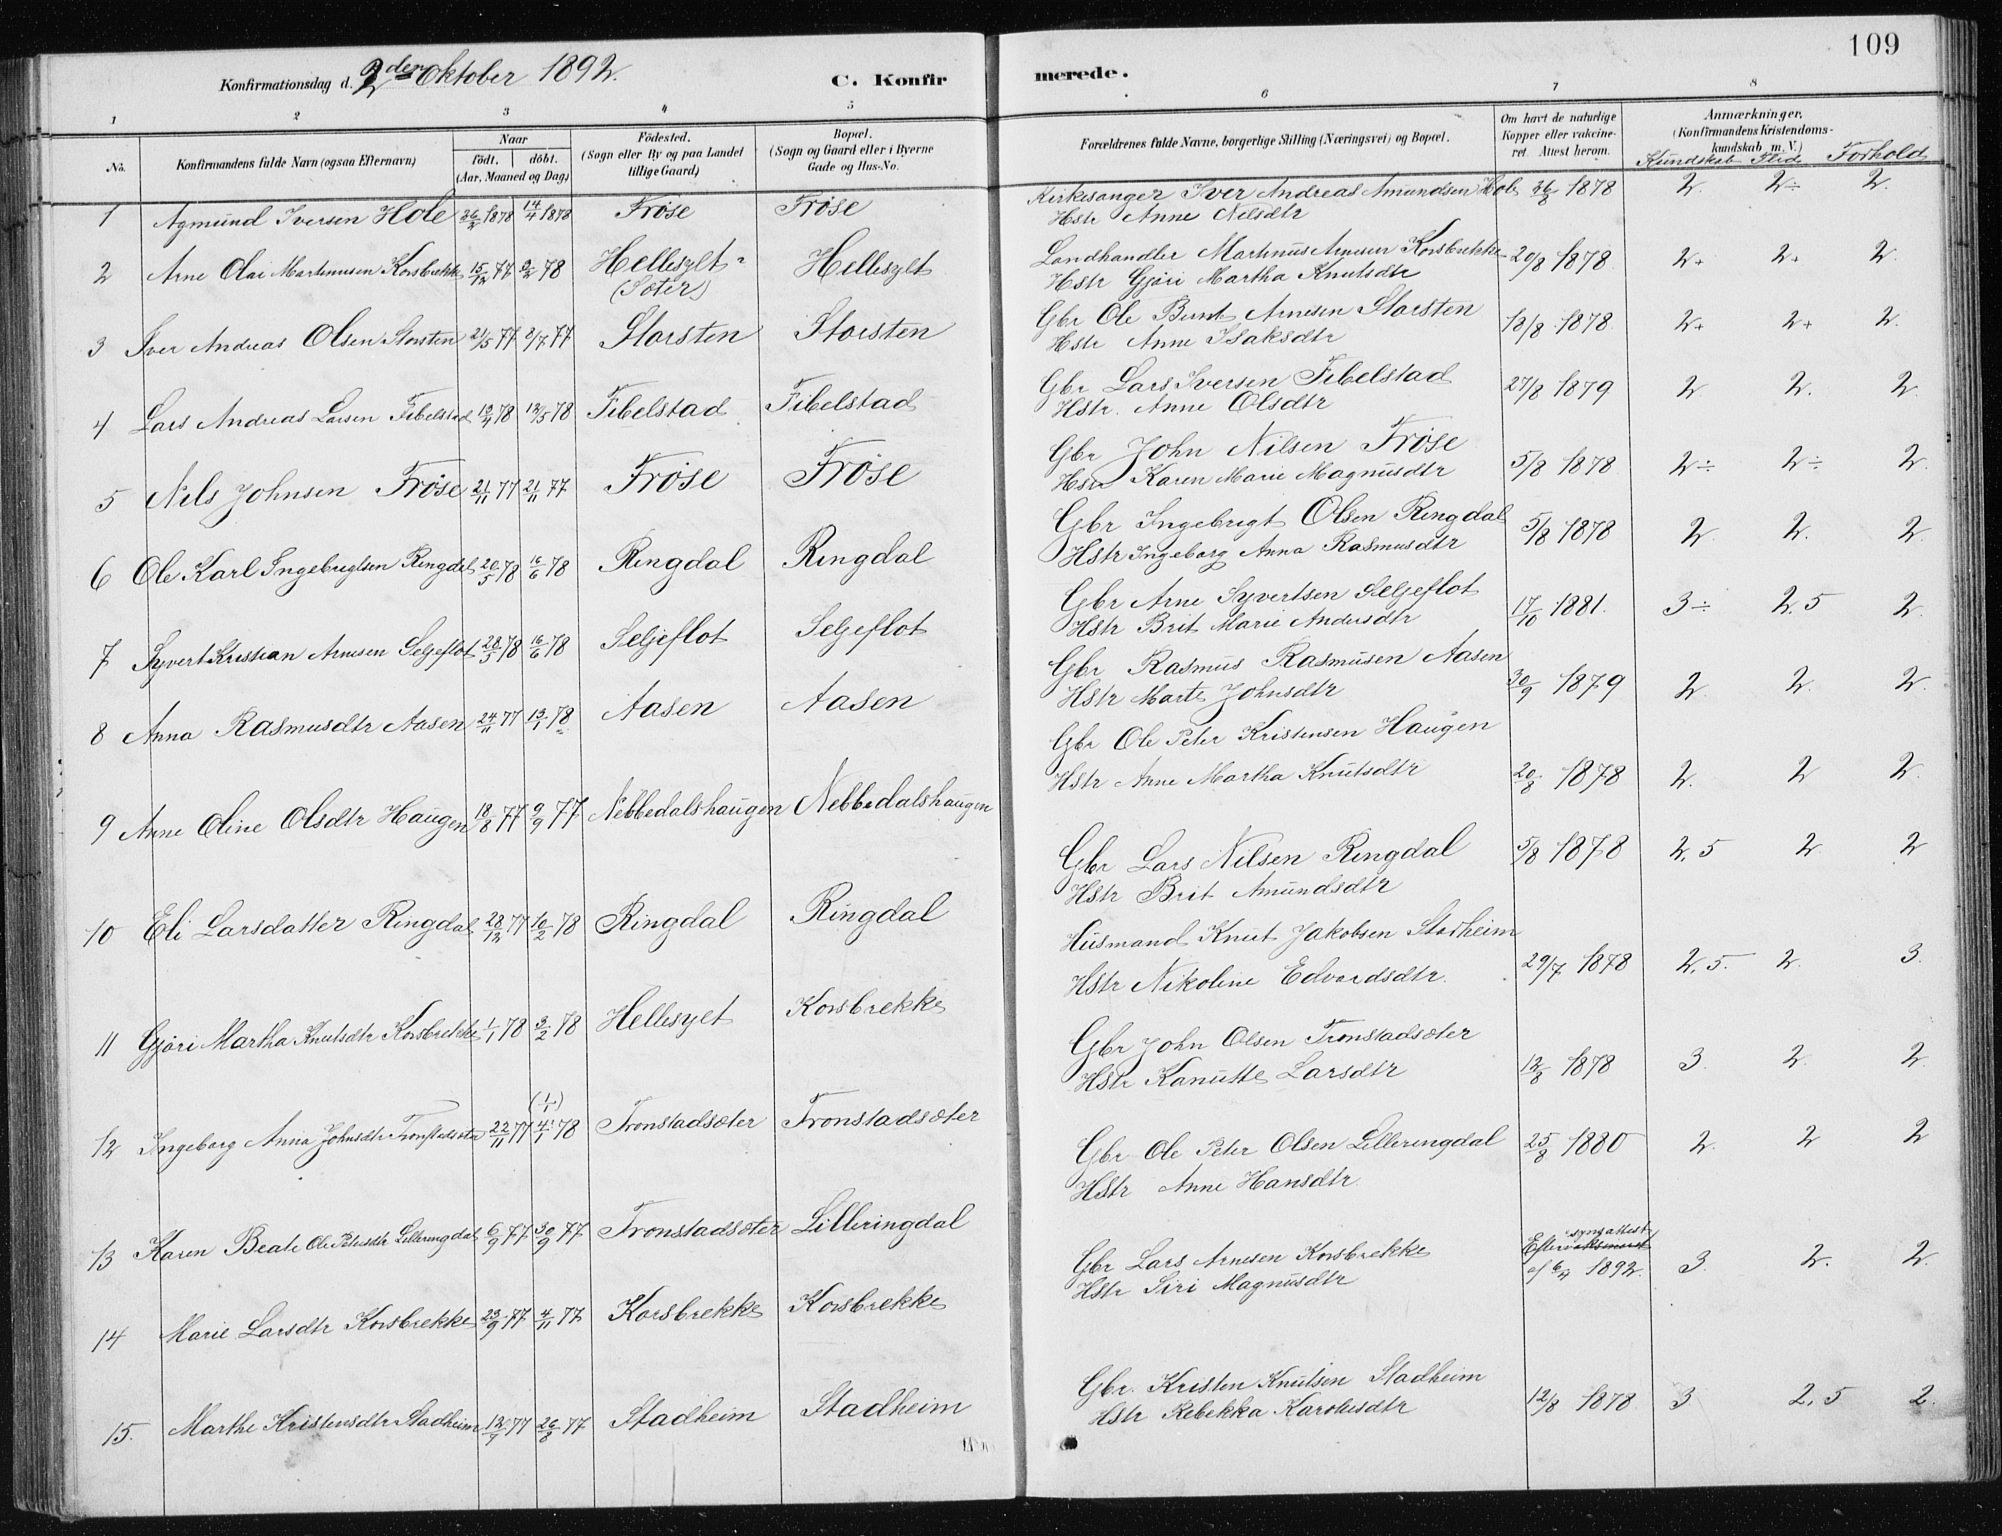 109
Konfirmationsdag d. 2den Oktober 1892.
C. Konfirmerede.
1 2 3 4 5 6 7 8
No. Konfirmandens fulde Navn (ogsaa Efternavn) Naar födt. döbt. (Aar, Maaned og Dag) Födested. (Sogn eller By og paa Landet tillige Gaard) Bopæl. (Sogn og Gaard eller i Byerne Gade og Hus-No. Forældrenes fulde Navne, borgerlige Stilling (Næringsvei) og Bopæl. Om havt de naturlige Kopper eller vakcineret. Attest herom. Anmærkninger, (Konfirmandens Kristendomskundskab m. V.) Kundskab Flid Forhold
1 Agmund Iversen Hole 26/2 1878 14/4 1878 Frøse Frøse Kirkesanger Iver Andreas Amundsen Hole 26/8 1878 2. 2÷ 2.
Hstr Anne Nilsdtr
2 Arne Olai Martinusen Korsbrekke 15/12 77 3/2 78 Hellesylt Hellesylt Landhandler Martinus Arnesen Korsbrekke 20/8 1878 2+ 2+ 2.
(Sæter) Hstr Gjøri Martha Knutsdtr
3 Iver Andreas Olsen Storsten 21/5 77 2/7 77 Storsten Storsten Gbr Ole Bernt Arnesen Storsten 18/8 1878. 2+ 2+ 2.
Hstr Anne Isaksdtr
4 Lars Andreas Larsen Fibelstad 19/4 78 12/5 78 Fibelstad Fibelstad Gbr Lars Iversen Fibelstad 27/8 1879 2 2. 2.
Hstr. Anne Olsdtr
5 Nils Johnsen Frøse 21/11 77 21/11 77 Frøse Frøse Gbr John Nilsen Frøse 5/8 1878 2÷ 2÷ 2.
Hstr Karen Marie Magnusdtr
6 Ole Karl Ingebrigtsen Ringdal 20/5 78 16/6 78 Ringdal Ringdal Gbr Ingebrigt Olsen Ringdal 5/8 1878 2. 2. 2.
Hstr Ingeborg Anna Rasmusdtr
7 Syvert Kristian Arnesen Seljeflot 28/5 78 16/6 78 Seljeflot Seljeflot Gbr Arne Syvertsen Seljeflot 17/10 1881. 3÷ 2,5 2.
Hstr Brit Marie Andersdtr
8 Anna Rasmusdtr Aasen 24/11 77 13/1 78 Aasen Aasen Gbr Rasmus Rasmusen Aasen 30/9 1879 2. 2. 2.
Hstr Marte Johnsdtr
9 Anne Oline Olsdtr Haugen 18/8 77 9/9 77 Nebbedalshaugen Nebbedalshaugen Gbr Ole Peter Kristensen Haugen
Hstr Anne Martha Knutsdtr 20/8 1878 2. 2 2.
10 Eli Larsdatter Ringdal 28/12 77 10/2 78 Ringdal Ringdal Gbr Lars Nilsen Ringdal 5/8 1878 2,5 2 2
Hstr Brit Amundsdtr
11 Gjøri Martha Knutsdtr Korsbrekke 1/1 78 3/2 78 Hellesylt Korsbrekke Husmand Knut Jakobsen Stadheim
Hstr Nikoline Edvardsdtr. 29/7 1878 2,5. 2. 3.
(1/1)
12 Ingeborg Anna Johnsdtr Tronstadsæter 22/11 77 4/1 78 Tronstadsæter Tronstadsæter Gbr John Olsen Tronstadsæter
Hstr Kanutte Larsdtr 12/8 1878 3. 2. 2.
13 Karen Beate Ole Petersdtr Lilleringdal 6/9 77 30/9 77 Tronstadsæter Lilleringdal Gbr Ole Peter Olsen Lilleringdal 25/8 1880 2. 2 2
Hstr Anne Hansdtr
14 Marie Larsdtr Korsbrekke 23/9 77 4/11 77 Korsbrekke Korsbrekke Gbr Lars Arnesen Korsbrekke Efter synsattest af 1892. 3. 2. 2.
Hstr Siri Magnusdtr
15. Marthe Kristensdtr Stadheim 12/7 77 26/8 77 Stadheim Stadheim Gbr. Kristen Knutsen Stadheim 12/8 1878 3 2,5 2.
Hstr Rebekka Karolusdtr